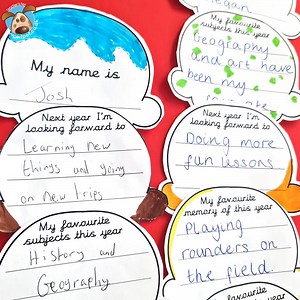 My name is
Josh
Next year I'm
looking forward to
Learning new
things and going
on new trips
My favourite
subjects this year
History and
Geography
Megan
My favourite
subjects this year
Geography
and art have
been my
Next year I'm
looking forward to
Doing more
fun lessons
My favourite
memory of this year
Playing
rounders on
the field.